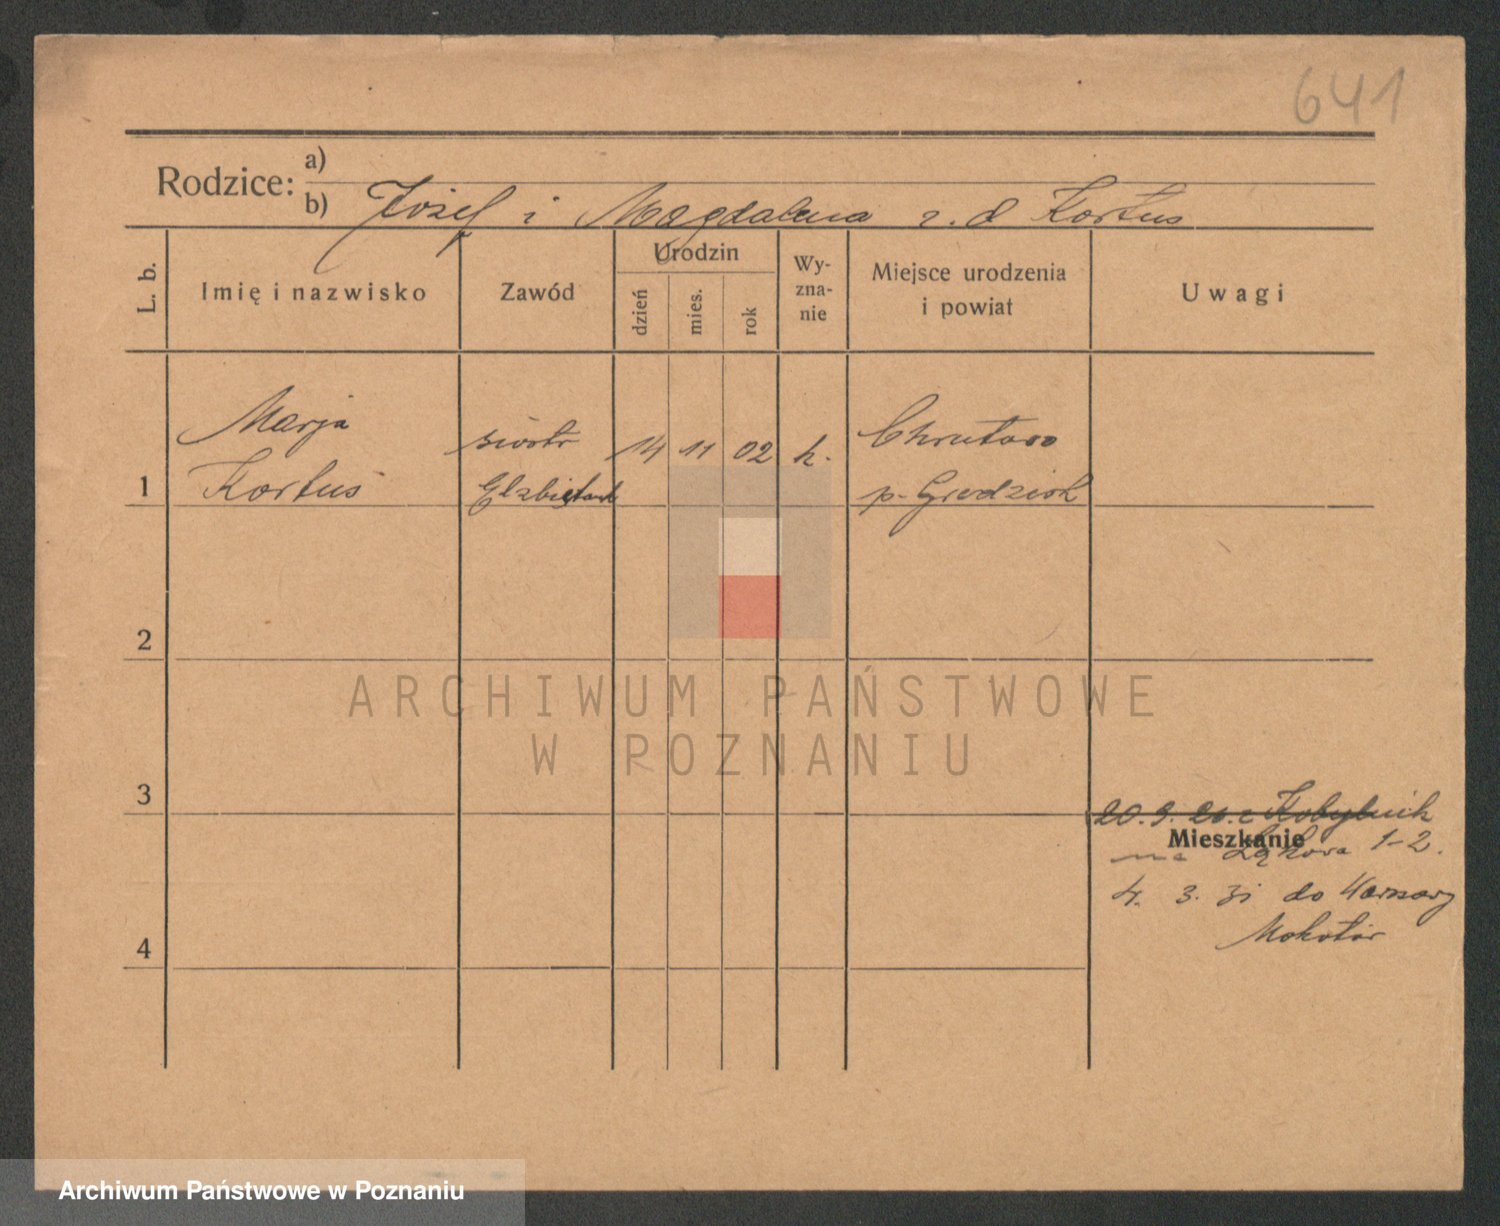 641
Rodzice: a)
b) Józef i Magdalena z. d Kortus
L. b.
Imię i nazwisko
Zawód
Urodzin
dzień
mies.
rok
Wy-
zna-
nie
Miejsce urodzenia
i powiat
Uwagi
1
Marja
Kortus
siostr
Elzbietank
14 11 02 k.
Chrustowo
p. Grodzisk
2
ARCHIWUM PAŃSTWOWE
W POZNANIU
3
20. 9. z Kobylnik
Mieszkanie
na Łąkowa 1-2.
4. 3. 31 do Warszawy
Mokotów
4
Archiwum Państwowe w Poznaniu